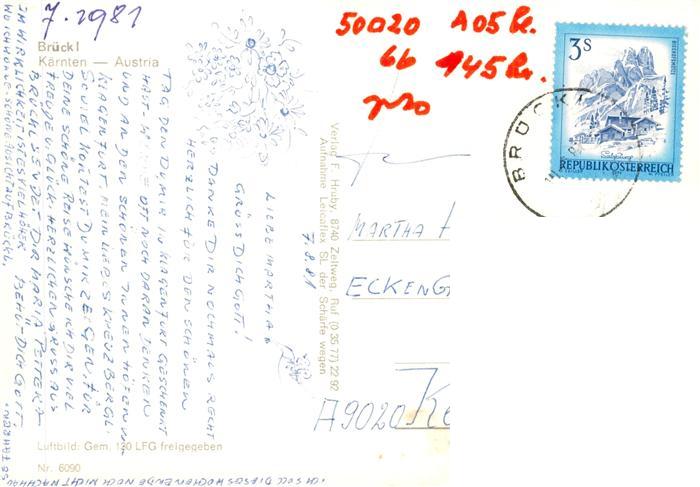 7.1981
Brückl
Kärnten — Austria
50020 A05 Kr.
66 145 Kr.
3S
REPUBLIK ÖSTERREICH
BRÜCK
7.8.81
LIEBE MARTHA
GRÜSS DICH GOTT!
DANKE DIR NOCHMALS RECHT
HERZLICH FÜR DEN SCHÖNEN
TAG DEN DU MIR IN KLAGENFURT GESCHENKT
HAST. OFT NOCH DARAN DENKEN
UND AN DEN SCHÖNEN INNENHÖFEN IN
KLAGENFURT. MEIN LIEBES KREUZBERGL.
SOVIEL KONTEST DU MIR ZEIGEN. FÜR
DEINE SCHÖNE REISE WÜNSCHE ICH DIR VIEL
FREUDE U. GLÜCK. HERZLICHEN GRUSS AUS
BRÜCKL SENDET DIR MARIA
IM WIRKLICHKEIT IST ES VIEL BEHÜT DICH GOTT,
WO ICH WOHNE
ICH SOLL DIESES WOCHENENDE NOCH NICHT NACHHAUSE FAHREN
Verlag F. Hruby, 8740 Zeltweg, Ruf (0 35 77) 22 92
Aufnahme Leicaflex SL der Schärfe wegen
MARTHA
ECKENG
A9020
Luftbild: Gem. 130 LFG freigegeben
Nr. 6090